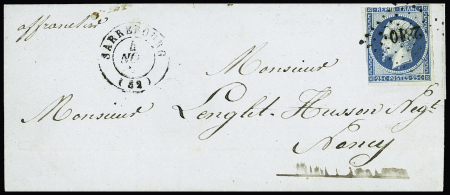 affranchie
SARREBOURG
4
(52)
REPUB FRANC
25 C POSTES 25 C
Monsieur
Monsieur Lenglet-Husson Negt
Nancy